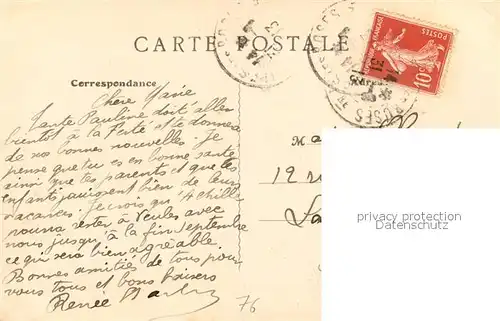 CARTE POSTALE
Correspondance
Chère Marie
Tante Pauline doit aller
bientôt à la Ferté et te donnera
de nos bonnes nouvelles. Je
pense que tu es en bonne santé
ainsi que tes parents et que les
enfants jouissent bien de leurs
vacances. Je crois qu'Achille
pourra rester à Veules avec
nous jusqu'à la fin septembre
ce qui sera bien agréable.
Bonnes amitiés de tous pour
vous tous et bons baisers
Renée
76
POSTES
10
M
12
La
privacy protection
Datenschutz